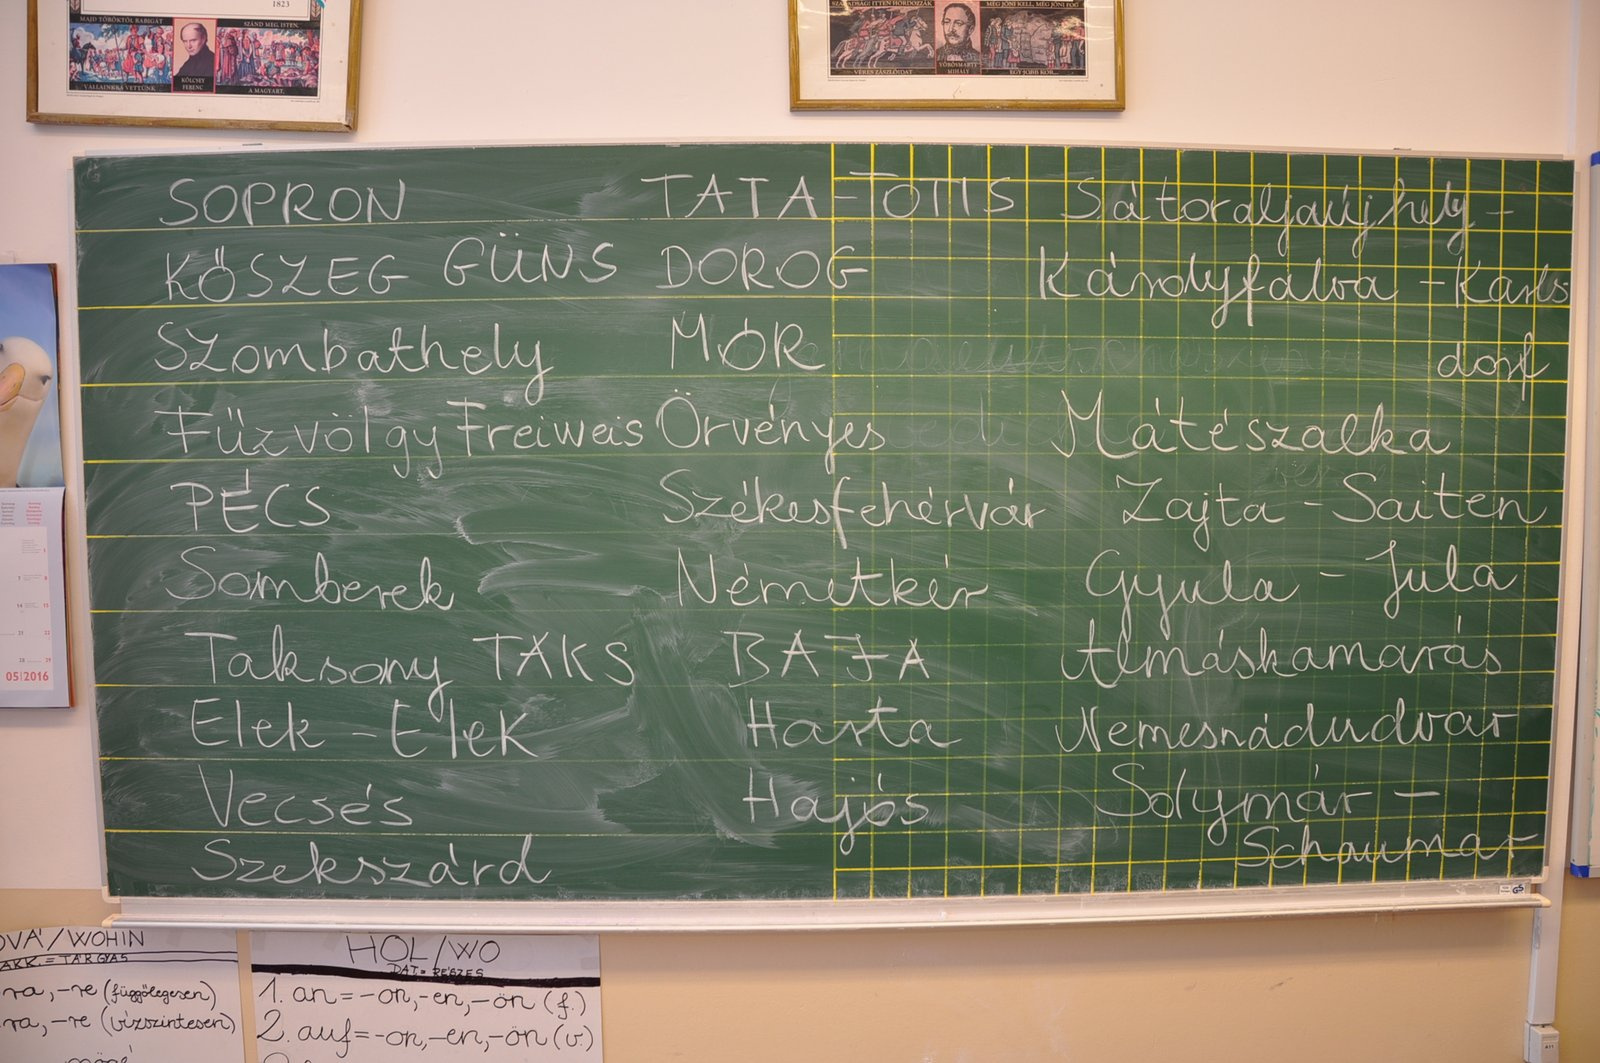 1823
MAJD TÖRÖKTŐL RABIGÁT
SZÁND MEG, ISTEN,
KÖLCSEY
FERENC
VÁLLAINKRA VETTÜNK
A MAGYART,
SZABADSÁG! ITTEN HORDOZZÁK
MÉG JŐNI KELL, MÉG JŐNI FOG
VÖRÖSMARTY
MIHÁLY
VÉRES ZÁSZLÓIDAT
EGY JOBB KOR...
SOPRON
KŐSZEG GÜNS
Szombathely
Fűzvölgy Freiweis
PÉCS
Somberek
Taksony TAKS
Elek - Elek
Vecsés
Szekszárd
TATA - TOTIS
DOROG
MÓR
Örvényes
Székesfehérvár
Németkér
BAJA
Harta
Hajós
Sátoraljaújhely -
Károlyfalva - Karls
dorf
Mátészalka
Zajta - Saiten
Gyula - Jula
Almáskamarás
Nemesnádudvar
Solymár -
Schaumar
05|2016
OVÁ/WOHIN
AKK. = TÁRGYAS
ra, -re (függőlegesen)
ra, -re (vízszintesen)
HOL/WO
DAT = RÉSZES
1. an = -on, -en, -ön (f.)
2. auf = -on, -en, -ön (v.)